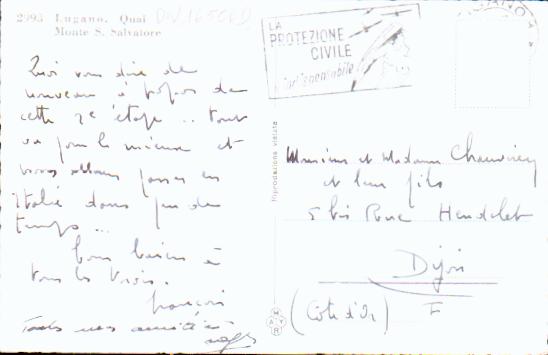 2993 Lugano. Quai
Monte S. Salvatore
LA
PROTEZIONE
CIVILE
Quoi vous dire de
nouveau à propos de
cette 2e étape .. tout
va pour le mieux et
nous allons passer en
Italie dans peu de
temps ...
bons baisers à
tous les trois.
françois
Toutes mes amitiés
Riproduzione vietata
Monsieur et Madame Chauvirey
et leur fils
5 bis Rue Hendelet
Dijon
(Côte d'Or) F